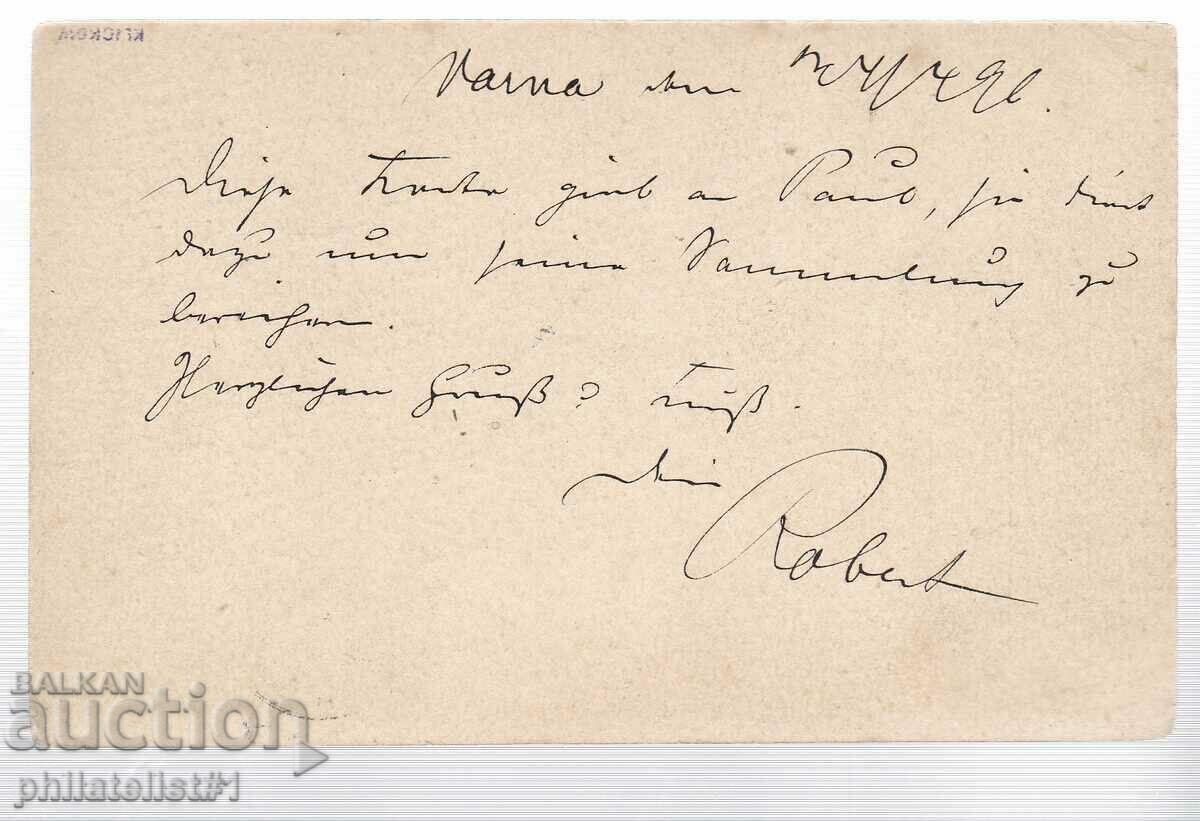 Varna den 4/4 96.
Diese Karte gieb an Paul, sie dient
dazu um seine Sammlung zu
bereichern.
Herzlichen Gruß & Kuß.
Dein
Robert
BALKAN
auction
philatelist#1